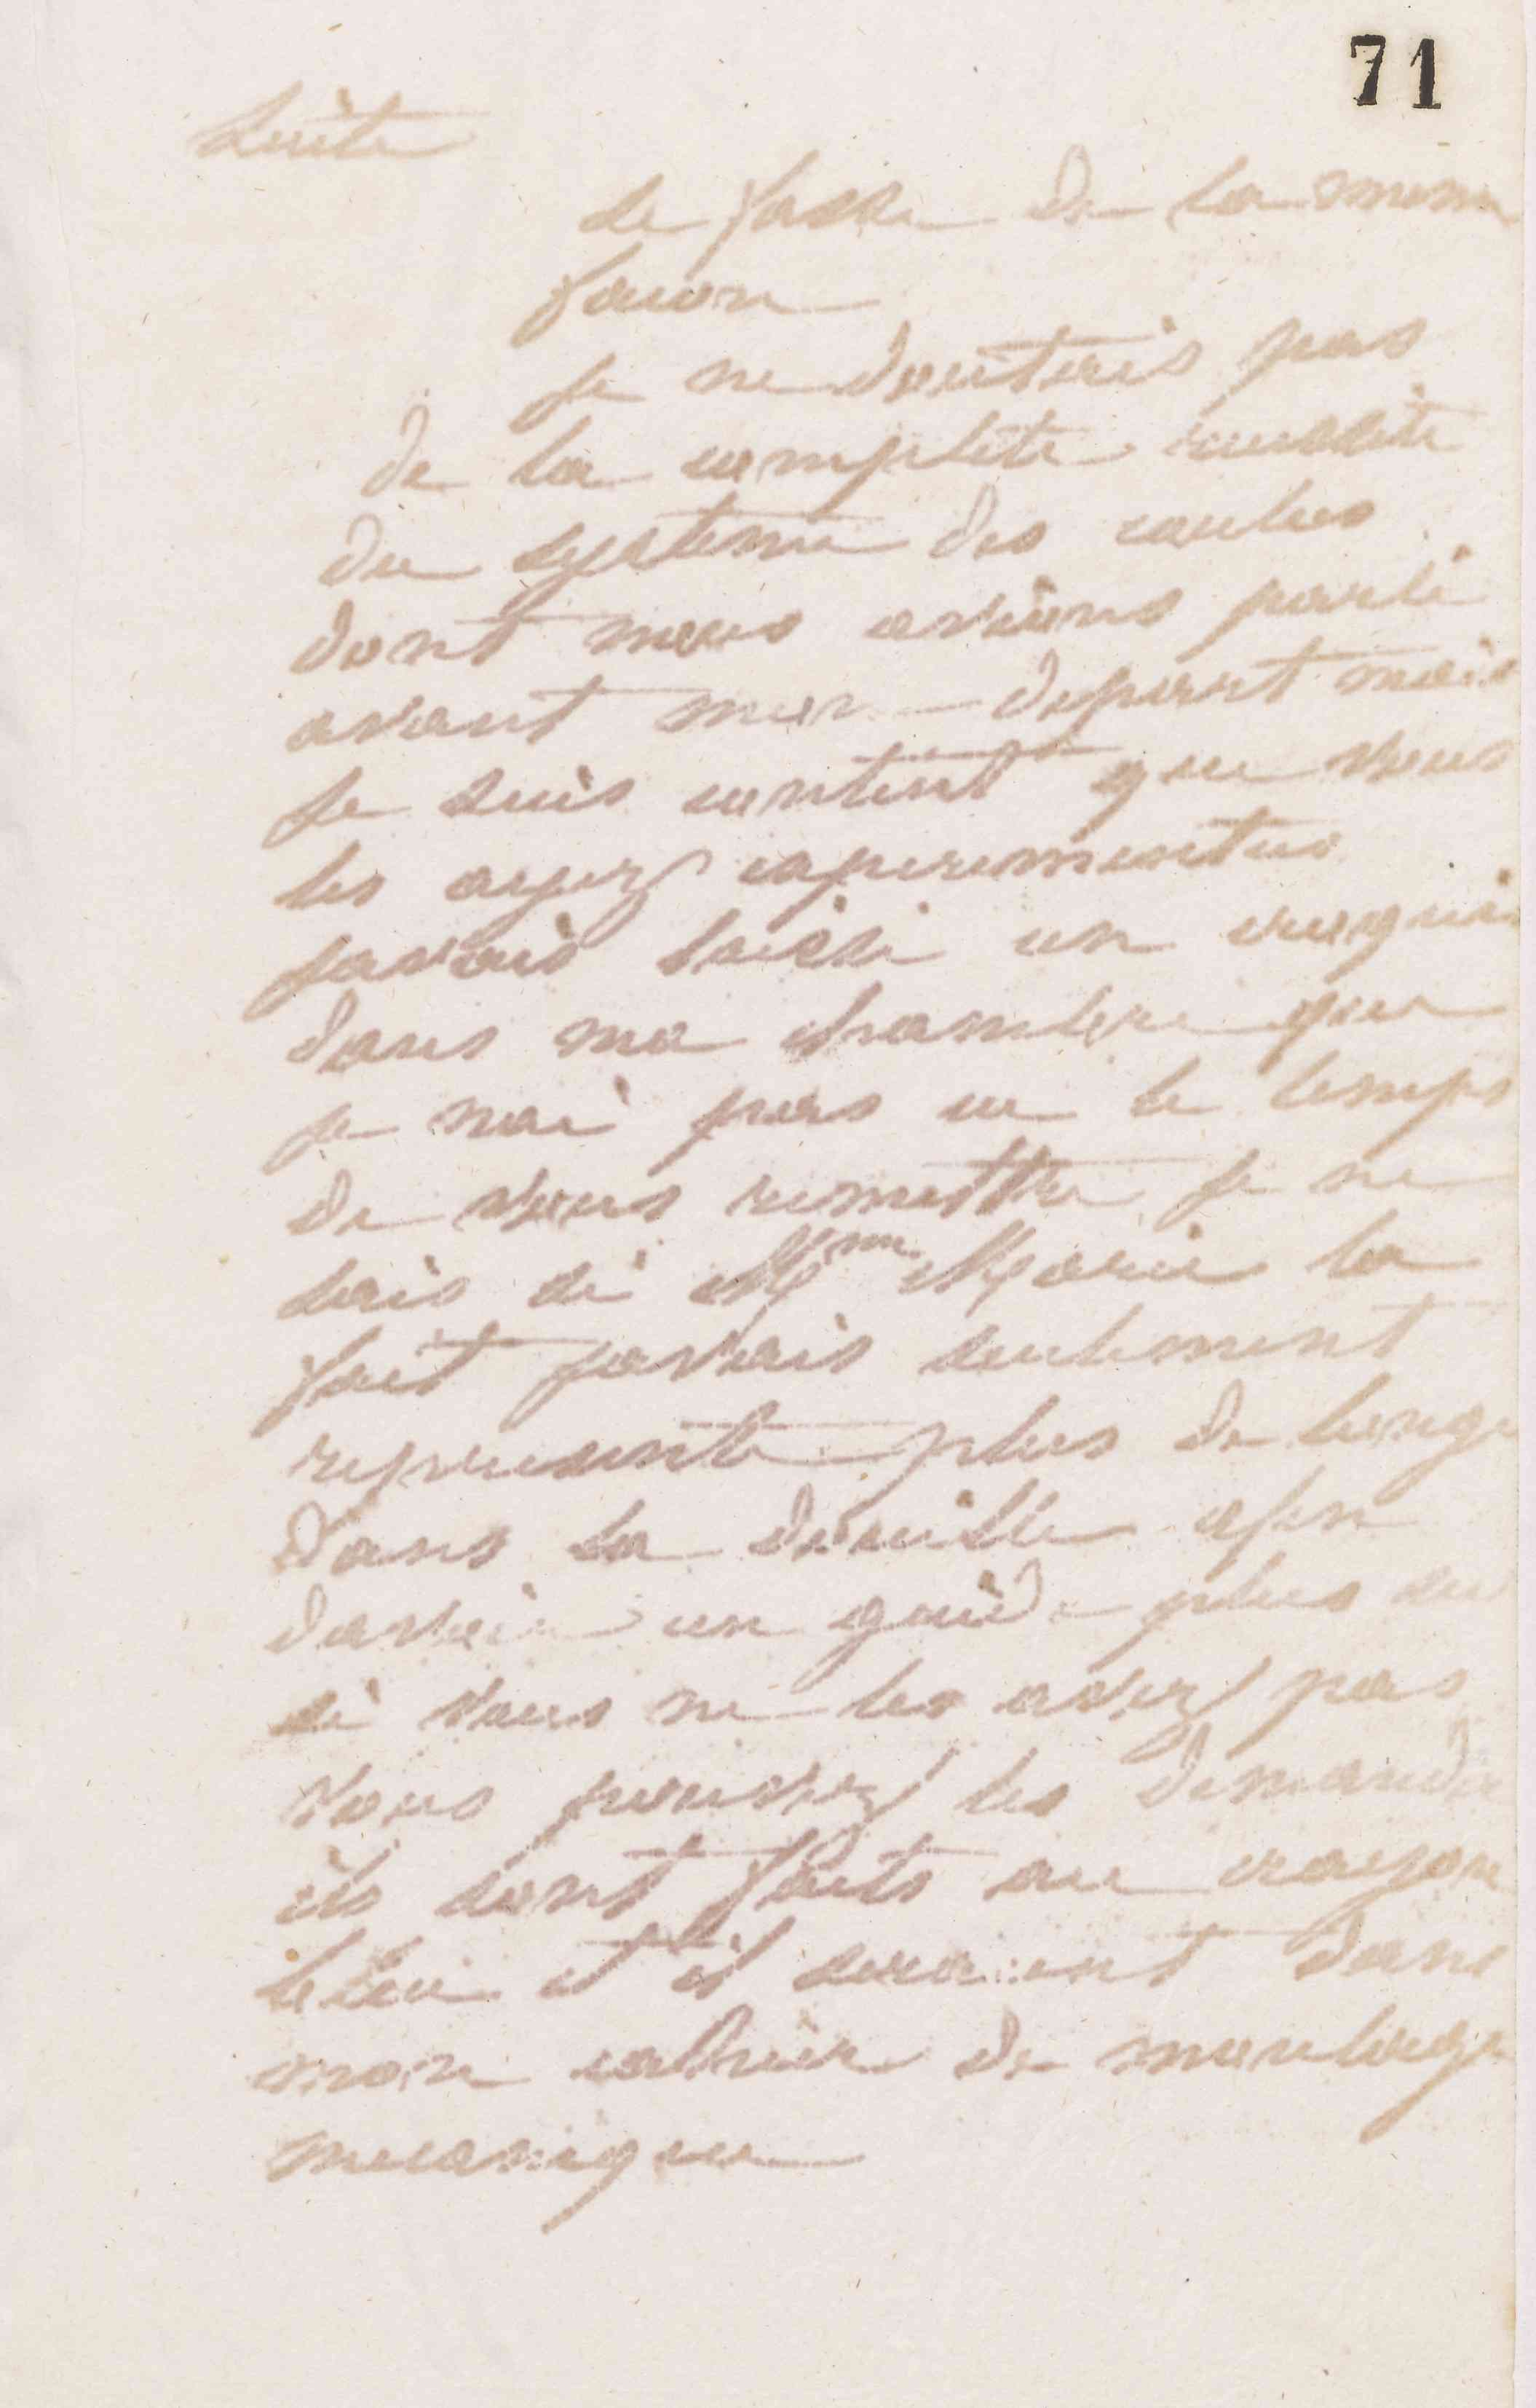 71
Suite
se fasse de la meme
facon
je ne douterais pas
de la complete reussite
du systeme des coules
dont nous avions parlé
avant mon depart mais
je suis content que vous
les ayez experimentés
javais laissé un croquis
dans ma chambre que
je nai pas eu le temps
de vous remettre je ne
sais si Mme Marie la
fait javais seulement
representé plus de longr
dans la douille afin
davoir un guide plus
si vous ne les avez pas
vous pouvez les demander
ils sont faits au crayon
bleu et il seraient dans
mon cahier de moulage
mecanique